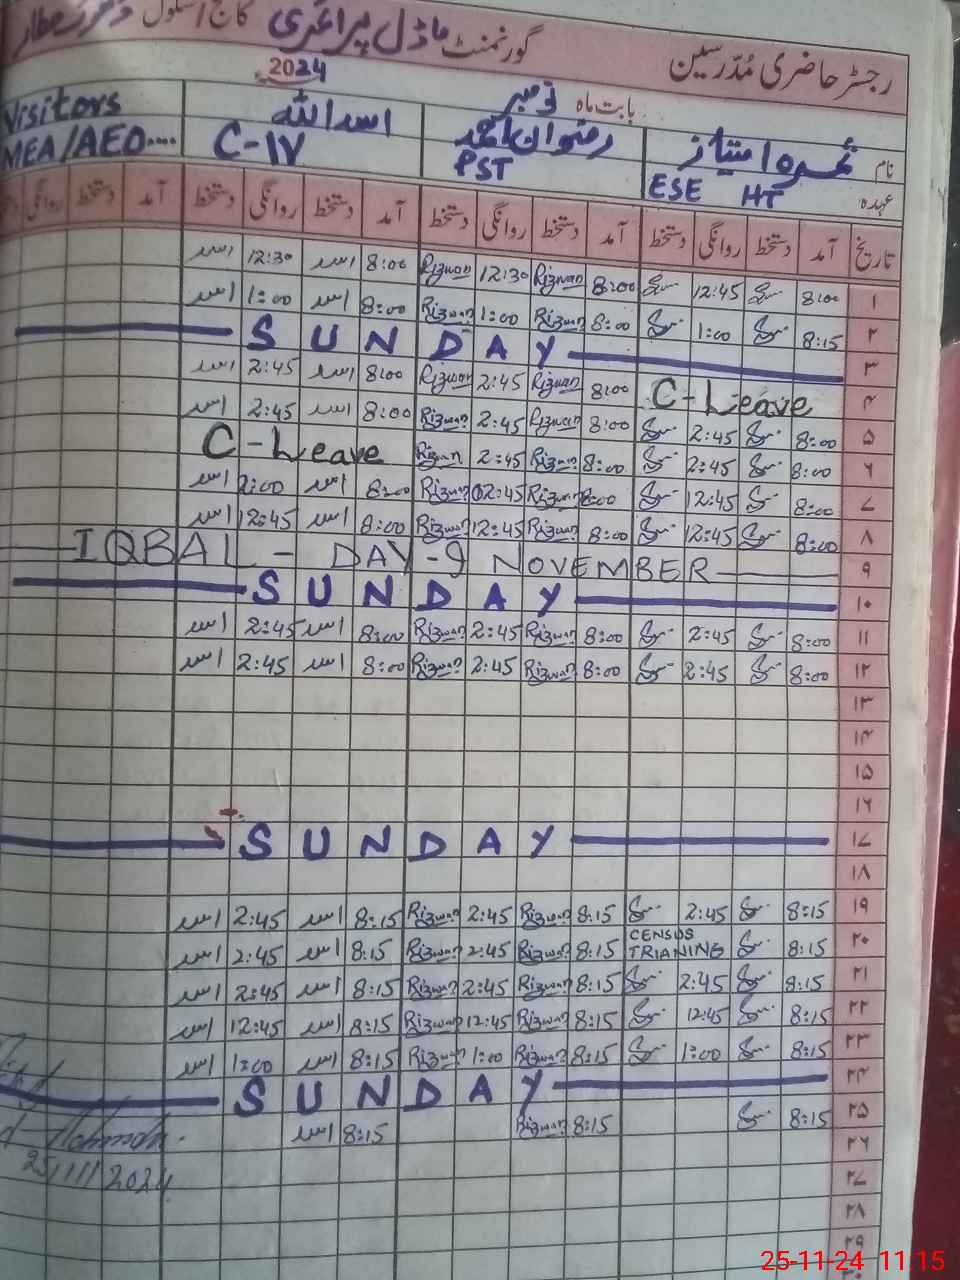 رجسٹر حاضری مُدرسین گورنمنٹ ماڈل پرائمری کالج اسکول
2024
بابت ماہ نومبر
نام ثمره امتیاز رضوان احمد اسد اللہ Visitors
عہدہ ESE HT PST C-17 MEA/AEO....
تاریخ آمد دستخط روانگی دستخط آمد دستخط روانگی دستخط آمد دستخط روانگی دستخط آمد دستخط روانگی
۱ 8:00 12:45 8:00 Rizwan 12:30 Rizwan 8:00 اسد 12:30 اسد
۲ 8:15 1:00 8:00 Rizwan 1:00 Rizwan 8:00 اسد 1:00 اسد
۳ SUNDAY
۴ C-Leave 8:00 Rizwan 2:45 Rizwan 8:00 اسد 2:45 اسد
۵ 8:00 2:45 8:00 Rizwan 2:45 Rizwan 8:00 اسد 2:45 اسد
۶ 8:00 2:45 8:00 Rizwan 2:45 Rizwan C-Leave
۷ 8:00 12:45 8:00 Rizwan 12:45 Rizwan 8:00 اسد 2:00 اسد
۸ 8:00 12:45 8:00 Rizwan 12:45 Rizwan 8:00 اسد 12:45 اسد
۹ IQBAL - DAY-9 NOVEMBER
۱۰ SUNDAY
۱۱ 8:00 2:45 8:00 Rizwan 2:45 Rizwan 8:00 اسد 2:45 اسد
۱۲ 8:00 2:45 8:00 Rizwan 2:45 Rizwan 8:00 اسد 2:45 اسد
۱۳
۱۴
۱۵
۱۶
۱۷ SUNDAY
۱۸
۱۹ 8:15 2:45 8:15 Rizwan 2:45 Rizwan 8:15 اسد 2:45 اسد
۲۰ 8:15 CENSUS TRIANING 8:15 Rizwan 2:45 Rizwan 8:15 اسد 2:45 اسد
۲۱ 8:15 2:45 8:15 Rizwan 2:45 Rizwan 8:15 اسد 2:45 اسد
۲۲ 8:15 12:45 8:15 Rizwan 12:45 Rizwan 8:15 اسد 12:45 اسد
۲۳ 8:15 1:00 8:15 Rizwan 1:00 Rizwan 8:15 اسد 1:00 اسد
۲۴ SUNDAY
۲۵ 8:15 8:15 Rizwan 8:15 اسد
۲۶
25/11/2024
۲۷
۲۸
۲۹
25-11-24 11:15